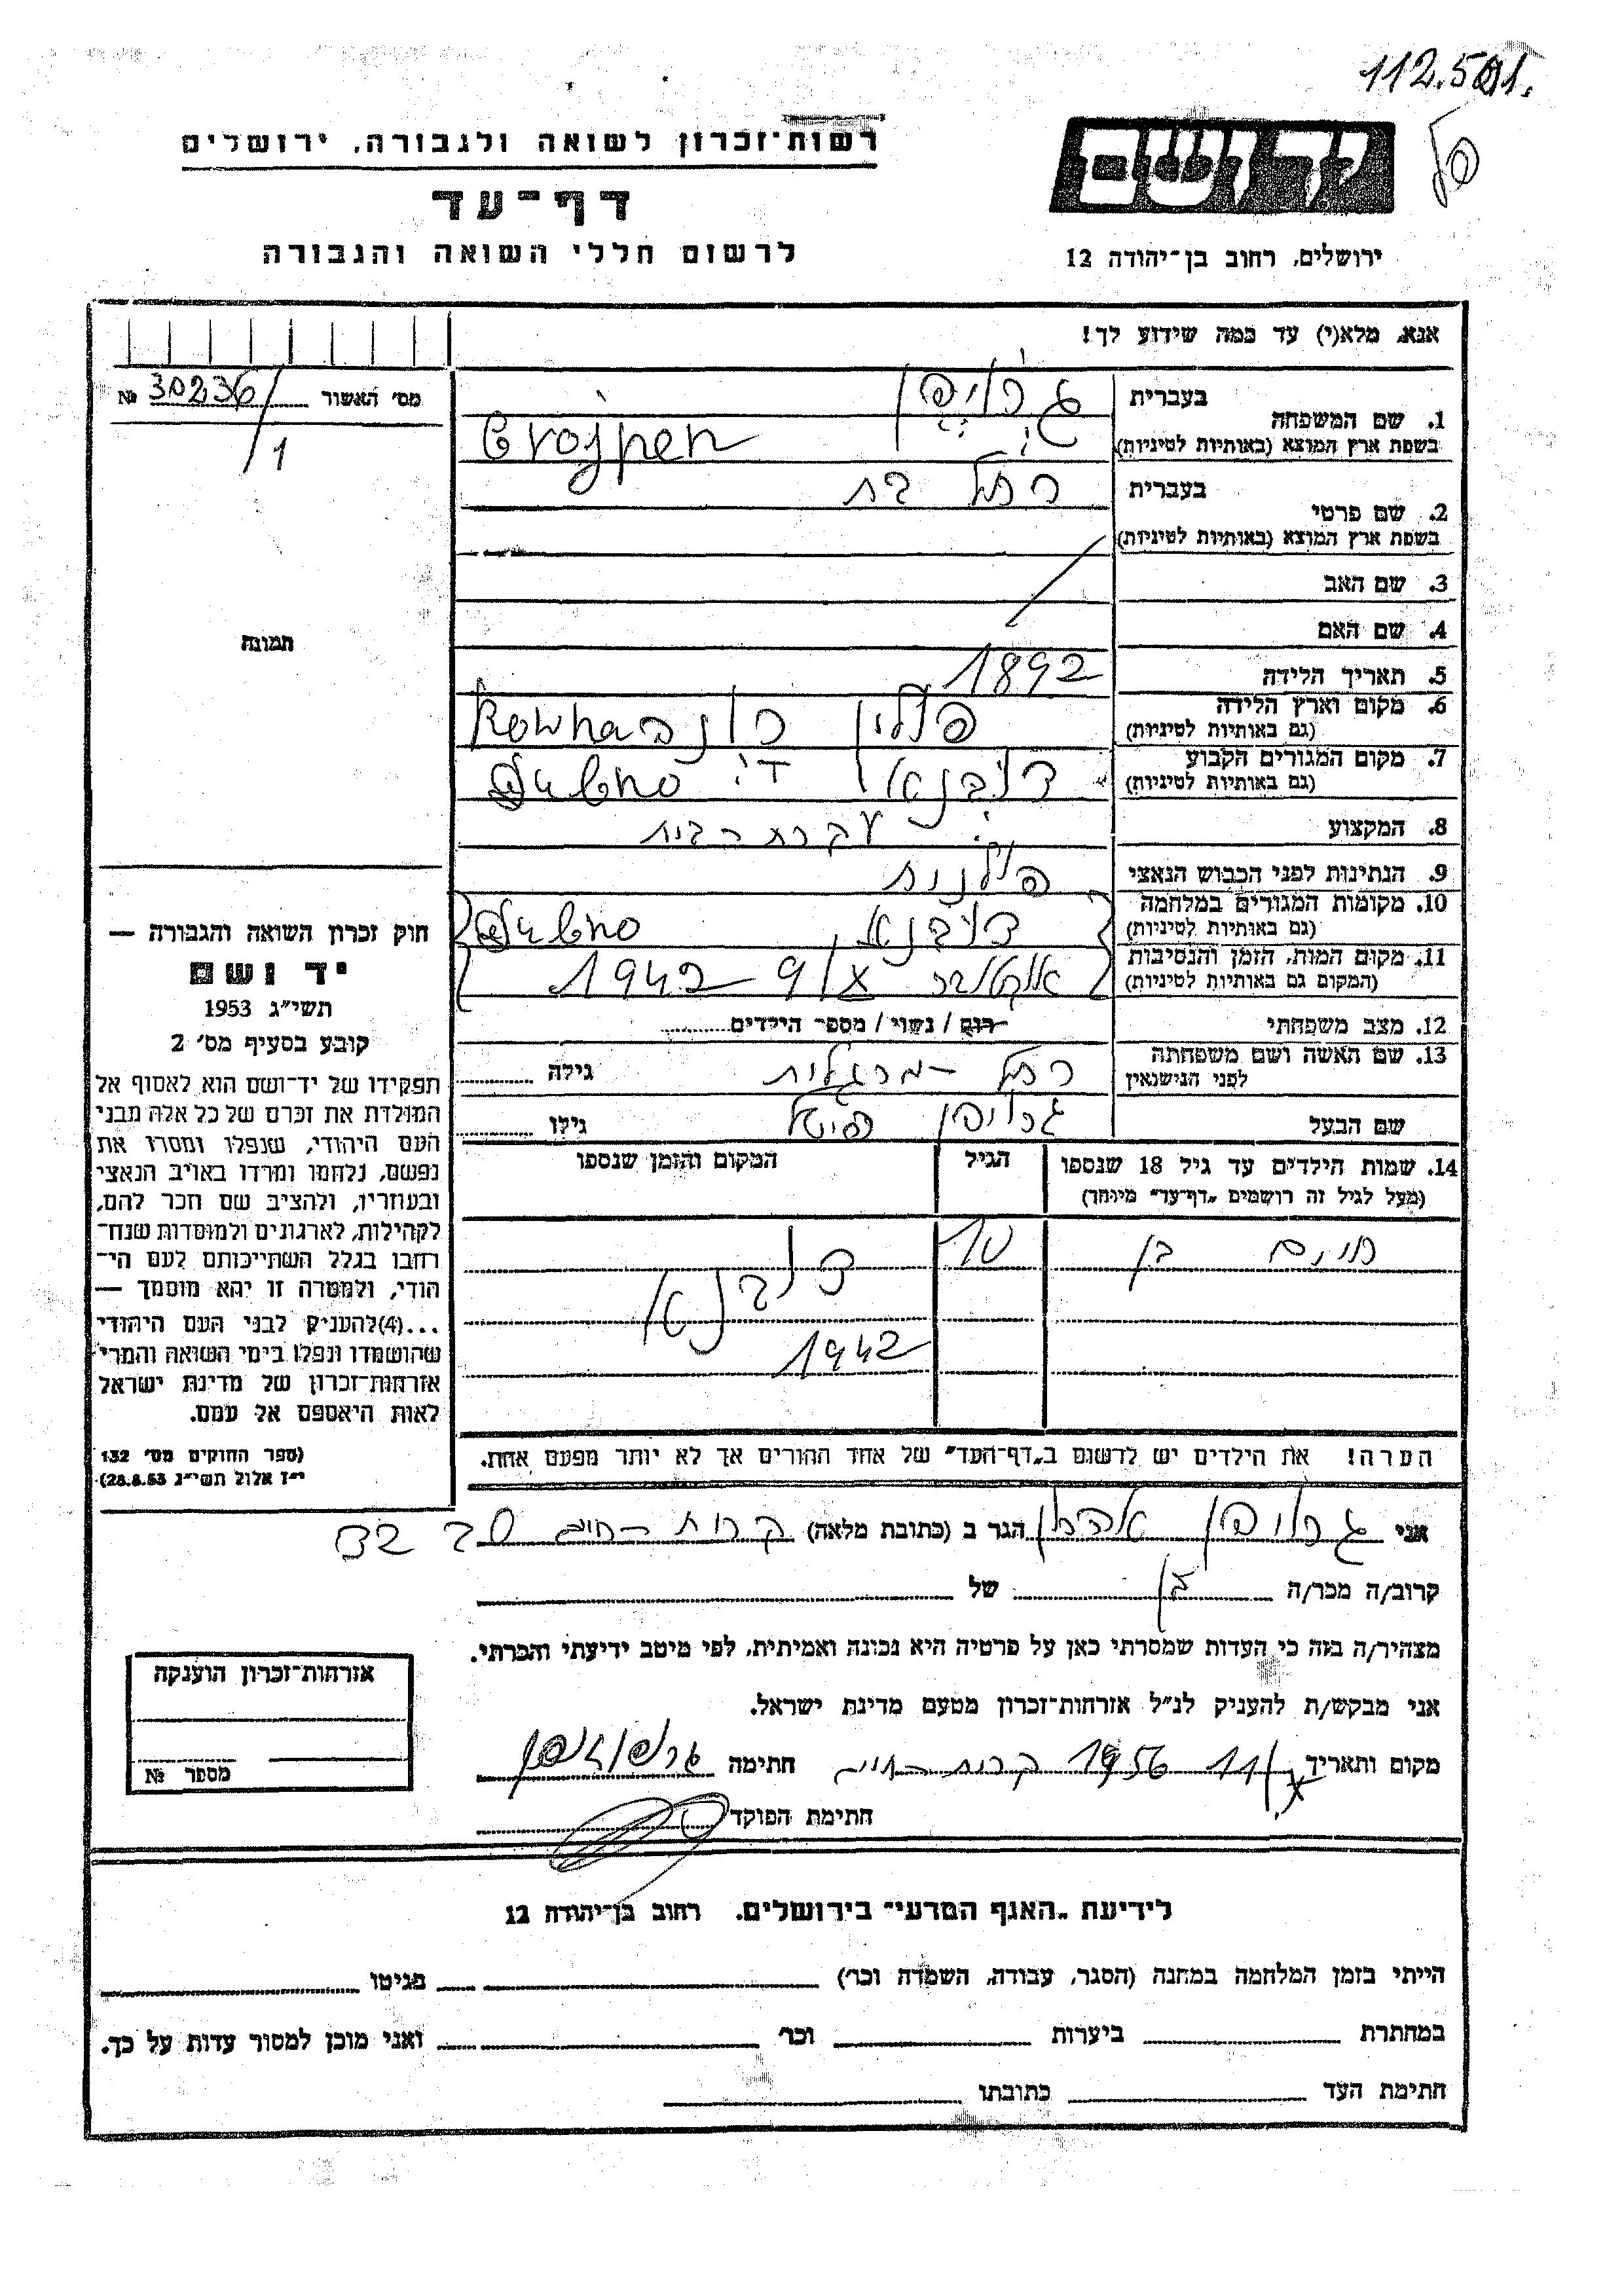 112.501.
רשות־זכרון לשואה ולגבורה, ירושלים
דף־עד
לרשום חללי השואה והגבורה
יד ושם
ירושלים, רחוב בן־יהודה 12
אנא, מלא(י) עד כמה שידוע לך!
מס׳ האשור № 30236/1
1. שם המשפחה בעברית גרויפן
בשפת ארץ המוצא (באותיות לטיניות) Grojpen
2. שם פרטי בעברית רחל בת
בשפת ארץ המוצא (באותיות לטיניות)
3. שם האב
4. שם האם
5. תאריך הלידה 1892
6. מקום וארץ הלידה פולין רונב Rowna
(גם באותיות לטיניות)
7. מקום המגורים הקבוע דובנא Dubno
(גם באותיות לטיניות)
8. המקצוע עקרת הבית
9. הנתינות לפני הכבוש הנאצי פולנית
10. מקומות המגורים במלחמה דובנא Dubno
(גם באותיות לטיניות)
11. מקום המות, הזמן והנסיבות אוקטובר 9/X 1942
(המקום גם באותיות לטיניות)
12. מצב משפחתי רווק / נשוי / מספר הילדים
13. שם האשה ושם משפחתה רחל מרגלית גילה
לפני הנישואין
שם הבעל גרויפן גילו
14. שמות הילדים עד גיל 18 שנספו הגיל המקום והזמן שנספו
(מעל לגיל זה רושמים „דף־עד״ מיוחד)
חיים בן 10 דובנא
1942
הערה! את הילדים יש לרשום ב„דף־העד״ של אחד ההורים אך לא יותר מפעם אחת.
תמונה
חוק זכרון השואה והגבורה —
יד ושם
תשי״ג 1953
קובע בסעיף מס׳ 2
תפקידו של יד־ושם הוא לאסוף אל
המולדת את זכרם של כל אלה מבני
העם היהודי, שנפלו ומסרו את
נפשם, נלחמו ומרדו באויב הנאצי
ובעוזריו, ולהציב שם וזכר להם,
לקהילות, לארגונים ולמוסדות שנח־
רבו בגלל השתייכותם לעם הי־
הודי, ולמטרה זו יהא מוסמך —
...(4)להעניק לבני העם היהודי
שהושמדו ונפלו בימי השואה והמרי
אזרחות־זכרון של מדינת ישראל
לאות היאספם אל עמם.
(ספר החוקים מס׳ 132
י״ז אלול תשי״ג 28.8.53)
אני גרויפן אהרן הגר ב (כתובת מלאה) קרית חיים
קרוב/ה מכר/ה בן של
מצהיר/ה בזה כי העדות שמסרתי כאן על פרטיה היא נכונה ואמיתית, לפי מיטב ידיעתי והכרתי.
אני מבקש/ת להעניק לנ״ל אזרחות־זכרון מטעם מדינת ישראל.
מקום ותאריך 11/X 1956 קרית חיים חתימה גרויפן
חתימת הפוקד
אזרחות־זכרון הוענקה
מספר №
לידיעת „האגף המדעי״ בירושלים, רחוב בן־יהודה 12
הייתי בזמן המלחמה במחנה (הסגר, עבודה, השמדה וכר׳) בגיטו
במחתרת ביערות וכר׳ ואני מוכן למסור עדות על כך.
חתימת העד כתובתו